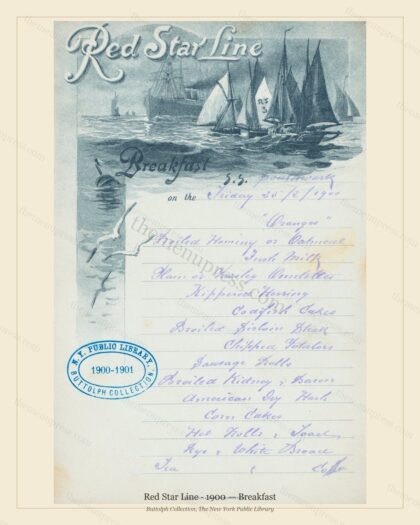 Red Star Line
R.S.
3
Breakfast
S.S. Southwark
on the Friday 20/2/1900
"Oranges"
Boiled Hominy or Oatmeal
Fresh Milk
Ham or Parsley Omelettes
Kippered Herring
Codfish Cakes
Broiled Sirloin Steak
Chipped Potatoes
Sausage Rolls
Broiled Kidney & Bacon
American Dry Hash
Corn Cakes
Hot Rolls & Toast
Rye & White Bread
Tea & Coffee
N.Y. PUBLIC LIBRARY
1900-1901
BUTTOLPH COLLECTION
themenupress.com
Red Star Line - 1900 — Breakfast
Buttolph Collection, The New York Public Library